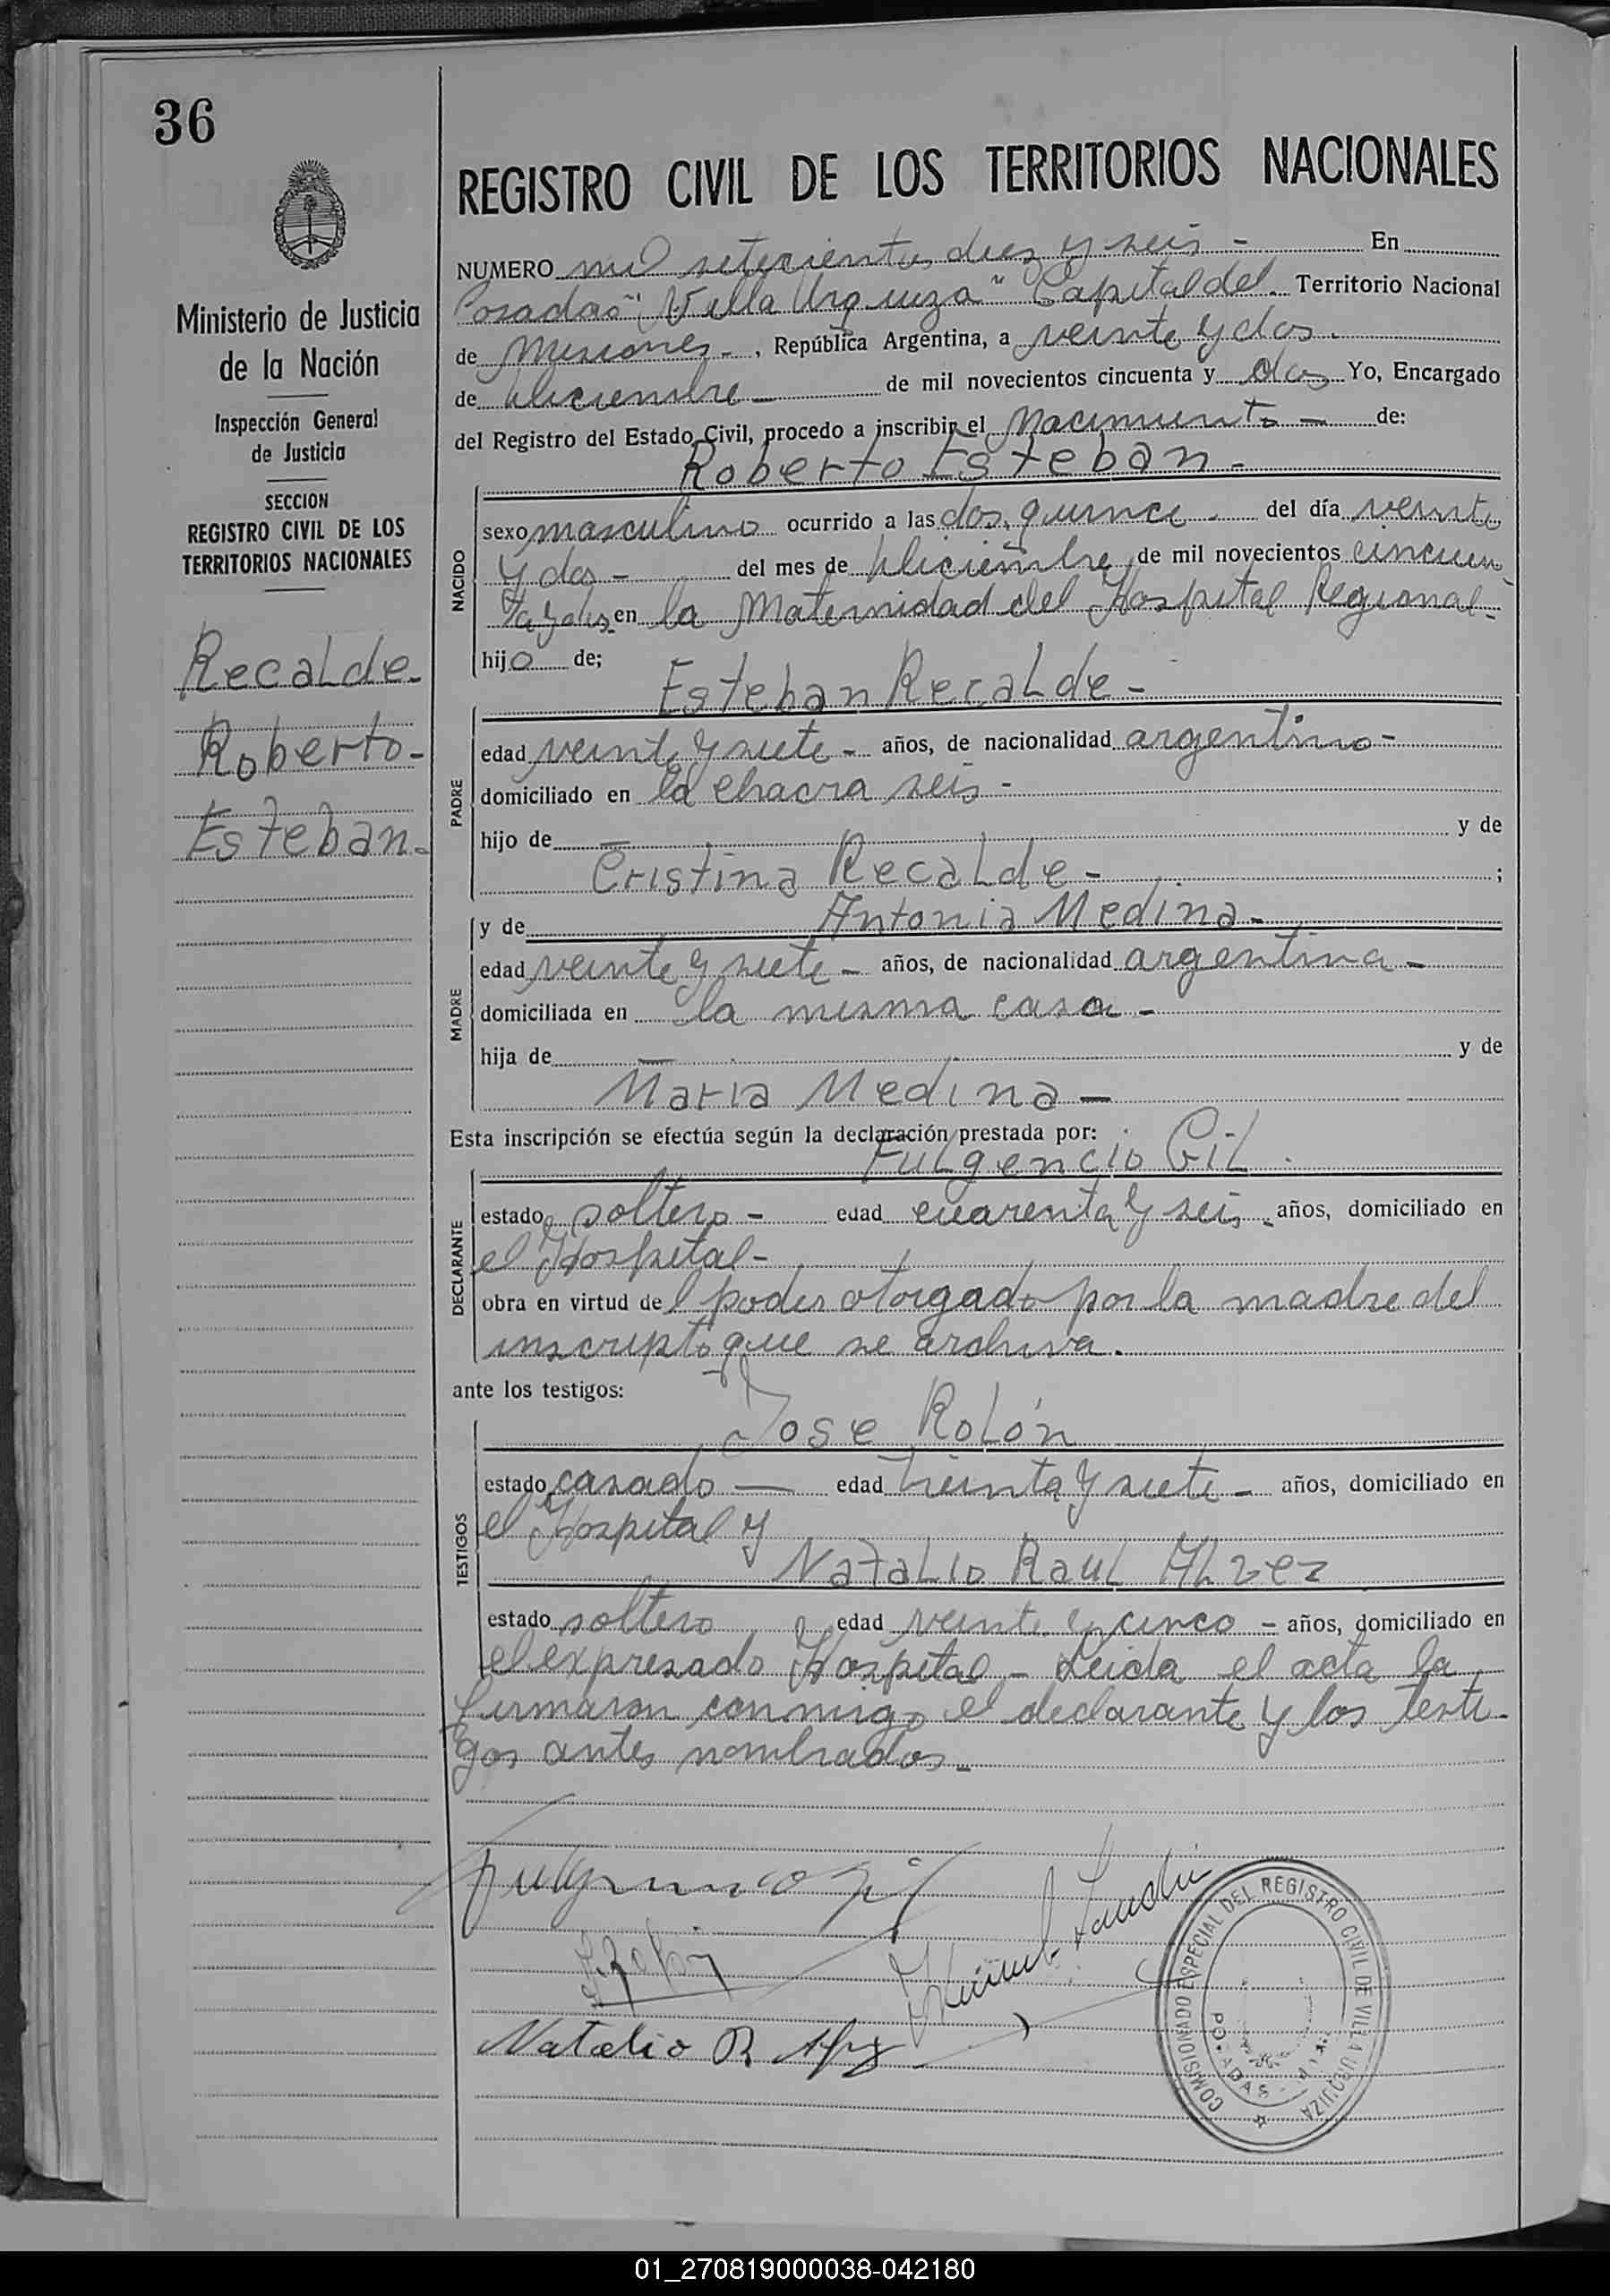 36
Ministerio de Justicia
de la Nación
Inspección General
de Justicia
SECCION
REGISTRO CIVIL DE LOS
TERRITORIOS NACIONALES
Recalde.
Roberto-
Esteban.
REGISTRO CIVIL DE LOS TERRITORIOS NACIONALES
NUMERO mil setecientos diez y seis - En
Posadas "Villa Urquiza" Capital del Territorio Nacional
de Misiones - , República Argentina, a veinte y dos.
de diciembre - de mil novecientos cincuenta y dos Yo, Encargado
del Registro del Estado Civil, procedo a inscribir el Nacimiento - de:
Roberto Esteban -
NACIDO
sexo masculino ocurrido a las dos, quince. del día veinte
y dos - del mes de diciembre de mil novecientos cincuen
ta y dos en la Maternidad del Hospital Regional-
hijo de;
Esteban Recalde -
PADRE
edad veinte y siete - años, de nacionalidad argentino -
domiciliado en la chacra seis -
hijo de — y de
Cristina Recalde - ;
y de Antonia Medina -
MADRE
edad veinte y siete - años, de nacionalidad argentina -
domiciliada en la misma casa -
hija de — y de
Maria Medina —
Esta inscripción se efectúa según la declaración prestada por:
Fulgencio Gil
DECLARANTE
estado soltero - edad cuarenta y seis años, domiciliado en
el Hospital -
obra en virtud del poder otorgado por la madre del
inscripto que se archiva.
ante los testigos:
Jose Rolón
TESTIGOS
estado casado — edad treinta y siete - años, domiciliado en
el Hospital y
Natalio Raul
estado soltero edad veinte y cinco - años, domiciliado en
el expresado Hospital - Leida el acta la
firmaron conmigo el declarante y los testi-
gos antes nombrados -
Fulgencio Gil
Natalio R.
COMISIONADO ESPECIAL DEL REGISTRO CIVIL DE VILLA URQUIZA
01_270819000038-042180